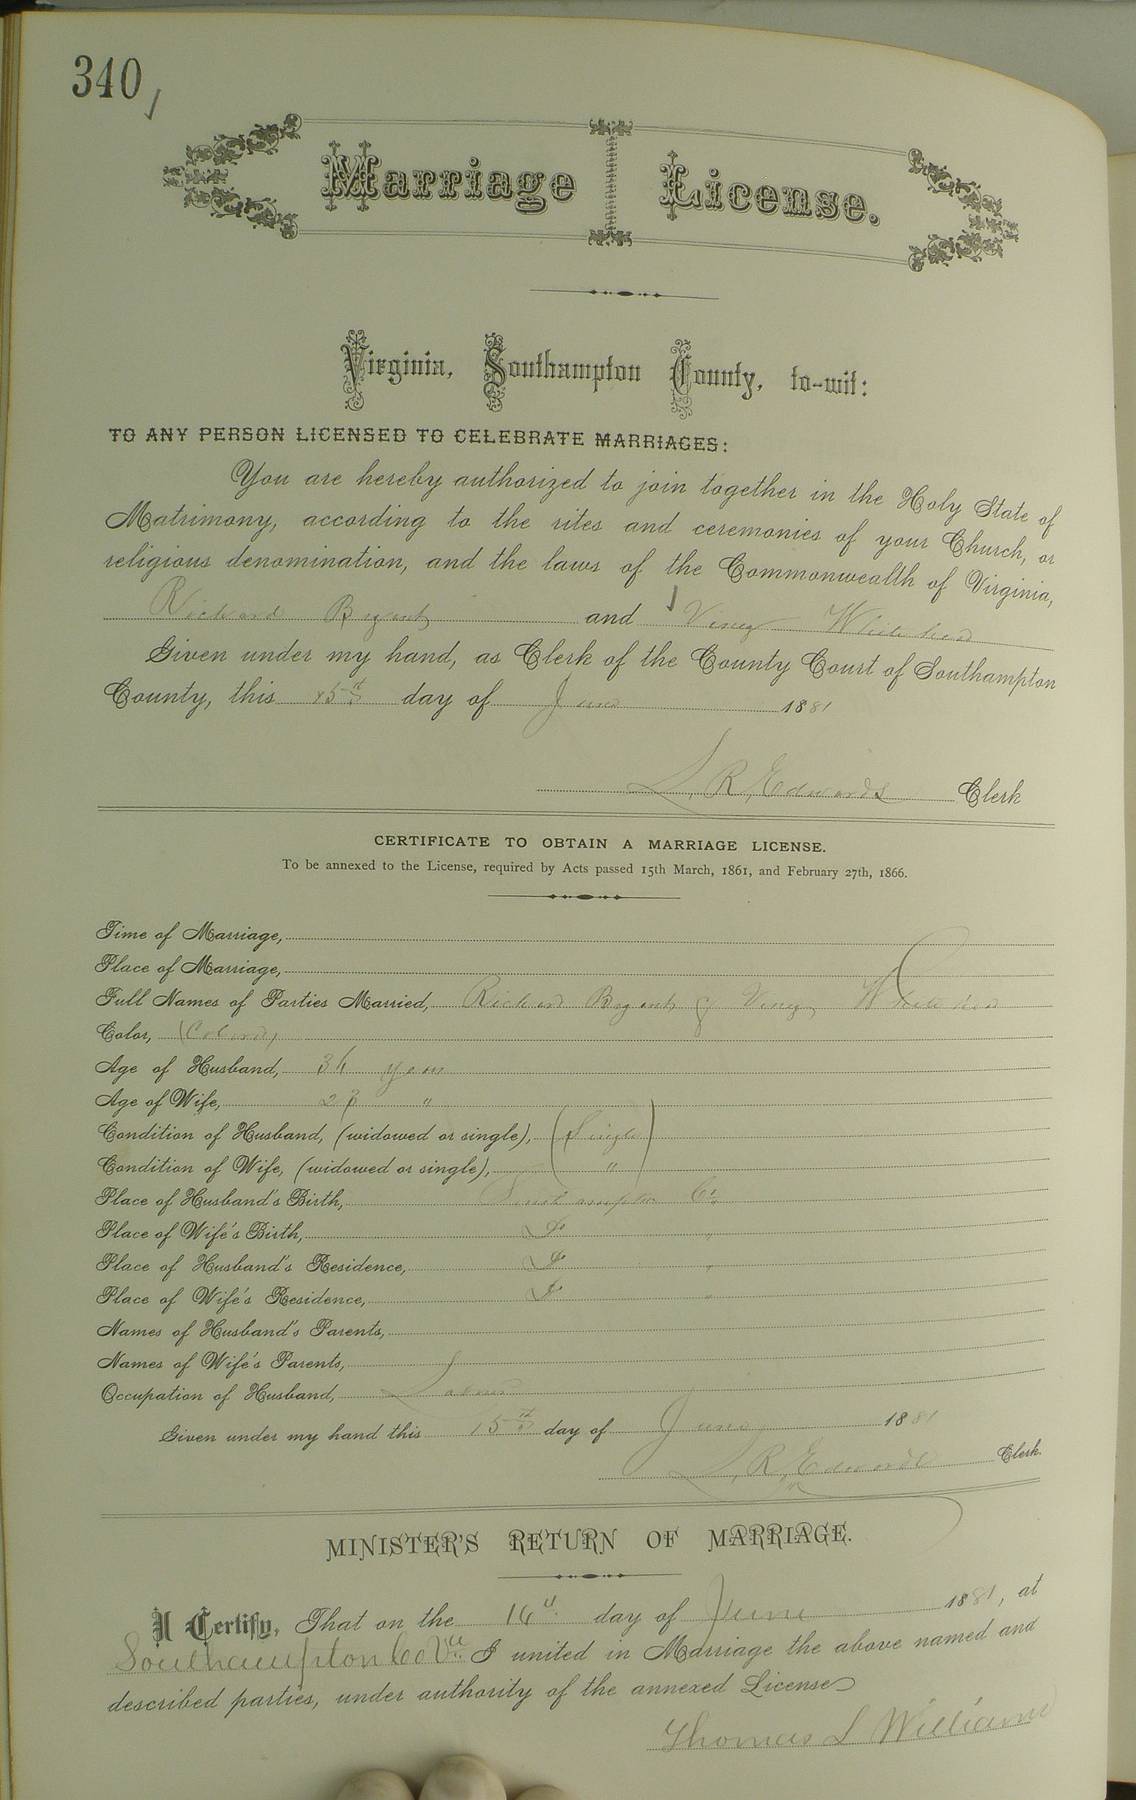 340
Marriage License.
Virginia, Southampton County, to-wit:
TO ANY PERSON LICENSED TO CELEBRATE MARRIAGES:
You are hereby authorized to join together in the Holy State of
Matrimony, according to the rites and ceremonies of your Church, or
religious denomination, and the laws of the Commonwealth of Virginia,
Richard Bryant and Viney Whitehead
Given under my hand, as Clerk of the County Court of Southampton
County, this 15th day of June 1881
L. R. Edwards Clerk
CERTIFICATE TO OBTAIN A MARRIAGE LICENSE.
To be annexed to the License, required by Acts passed 15th March, 1861, and February 27th, 1866.
Time of Marriage,
Place of Marriage,
Full Names of Parties Married, Richard Bryant & Viney Whitehead
Color, (Colored)
Age of Husband, years
Age of Wife, "
Condition of Husband, (widowed or single), (Single)
Condition of Wife, (widowed or single), "
Place of Husband's Birth, Southampton Co.
Place of Wife's Birth, Do "
Place of Husband's Residence, Do "
Place of Wife's Residence, Do "
Names of Husband's Parents,
Names of Wife's Parents,
Occupation of Husband, Laborer
Given under my hand this 15th day of June 1881
L. R. Edwards Clerk.
MINISTER'S RETURN OF MARRIAGE.
I Certify, That on the 16th day of June 1881, at
Southampton Co Va. I united in Marriage the above named and
described parties, under authority of the annexed License
Thomas L Williams